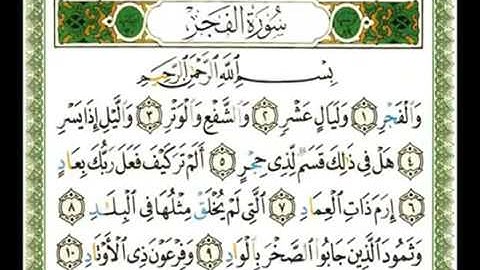 سُورَةُ الفَجْرِ
بِسْمِ اللَّهِ الرَّحْمَٰنِ الرَّحِيمِ
وَالْفَجْرِ ١ وَلَيَالٍ عَشْرٍ ٢ وَالشَّفْعِ وَالْوَتْرِ ٣ وَاللَّيْلِ إِذَا يَسْرِ
٤ هَلْ فِي ذَٰلِكَ قَسَمٌ لِّذِي حِجْرٍ ٥ أَلَمْ تَرَ كَيْفَ فَعَلَ رَبُّكَ بِعَادٍ
٦ إِرَمَ ذَاتِ الْعِمَادِ ٧ الَّتِي لَمْ يُخْلَقْ مِثْلُهَا فِي الْبِلَادِ ٨
وَثَمُودَ الَّذِينَ جَابُوا الصَّخْرَ بِالْوَادِ ٩ وَفِرْعَوْنَ ذِي الْأَوْتَادِ ١٠